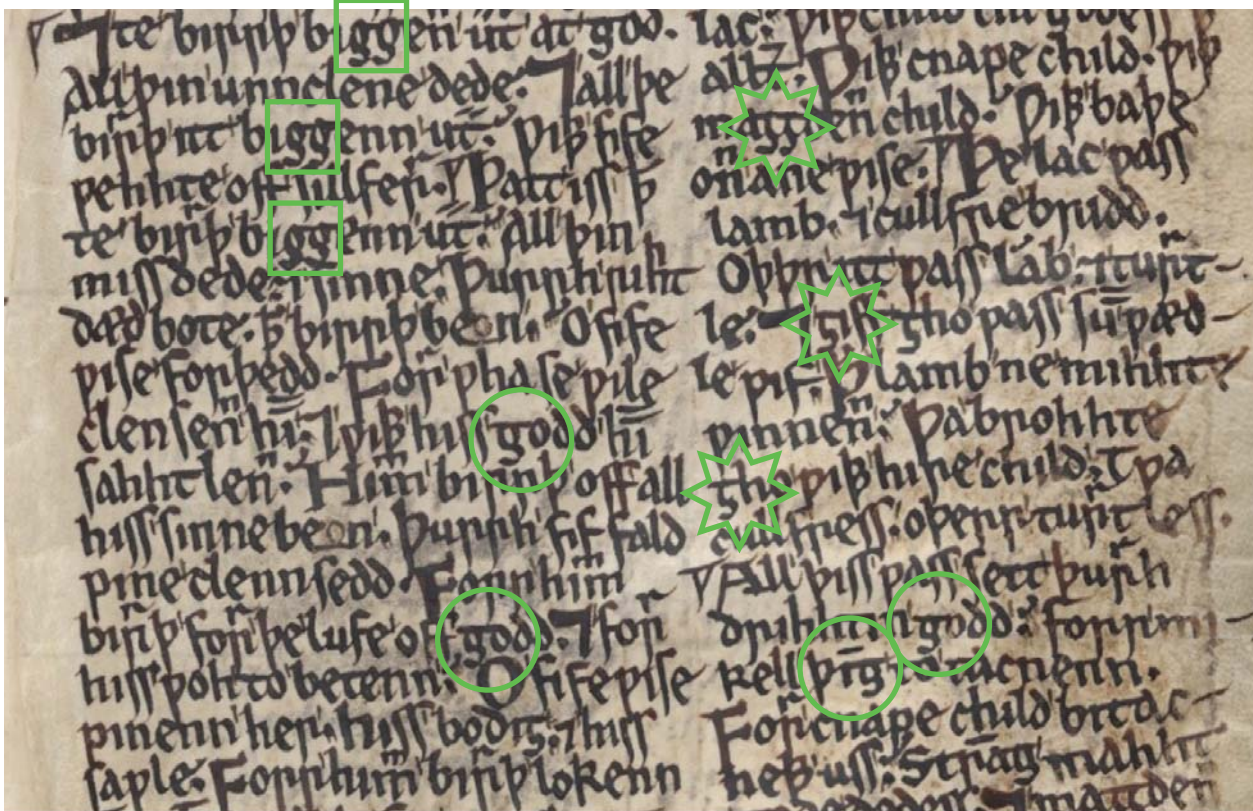 ⁊te birrþ biggeñ ut̄ at god.
All þin unnclene dede. ⁊ all þe
birrþ itt biggenn ut̄. Ƿiþþ fife
ƿehhte off sillfer̃. Þatt iss þ
te birrþ biggenn ut̄. All þin
missdede. ⁊ sinne. Þurrh rihht
dædbote. þ̄ birrþ beon. O fife
ƿise forþedd. For̃ ƿhase ƿile
clensen̄ hī. ⁊ ƿiþþ hiss godd hī
sahhtlen̄. Him̄ birrþ off all
hiss sinne beon. Þurrh fiffald
pine clennsedd. Forr him̄
bir̃þ for̃ þe lufe off godd. ⁊ for̃
hiss ƿoh to betenn. O fife ƿise
pinenn her. hiss bodiȝ. ⁊ hiss
saƿle. Forr him̄ birrþ lokenn
lac. Ƿiþþ child
Ƿiþþ cnape child. ƿiþþ
child. Ƿiþþ baþe
on ane ƿise. Þe lac ƿass
lamb. ⁊ cullfre bridd.
Oþþr itt ƿass lāb. ⁊ turt-
le. ⁊ ȝiff ȝho ƿass sū ƿæd-
le ƿif. Þ lamb ne mihhte
ƿinnen̄. Ƿa brohhte
ȝho ƿiþþ hire child. Tƿa
cullfress. oþerr turt less.
All þiss ƿass sett þurrh
drihhtin godd. forr mi-
kell þīg to tacnenn.
For̃ cnape child bitac-
neþþ uss. Strāg mahht